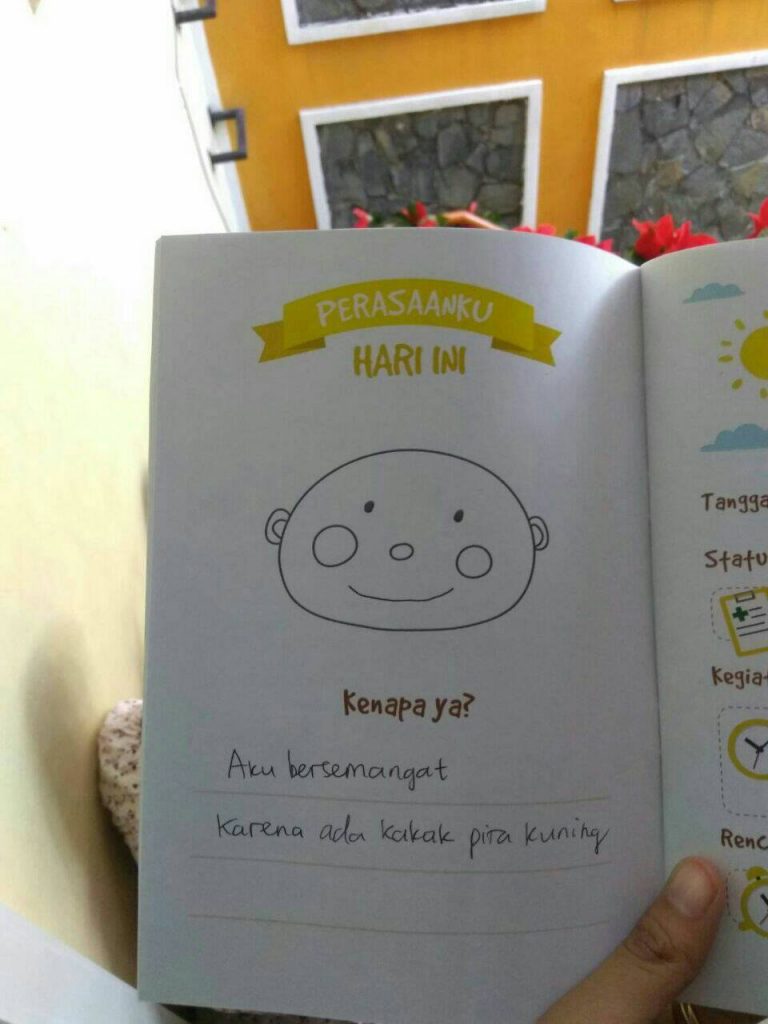 PERASAANKU
HARI INI
Kenapa ya?
Aku bersemangat
Karena ada kakak pita kuning
Tangga
Statu
Kegiat
Renc